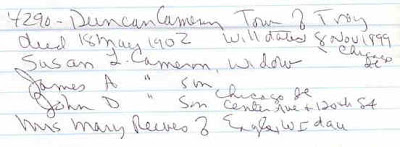 4290 - Duncan Cameron Town of Troy
died 18 May 1902 Will dated 8 Nov 1899
Chicago
Susan L. Cameron, Widow
James A " son Chicago Ill
John D " son Center Ave + 120th St
Mrs Mary Reeves of Eagle, WI dau